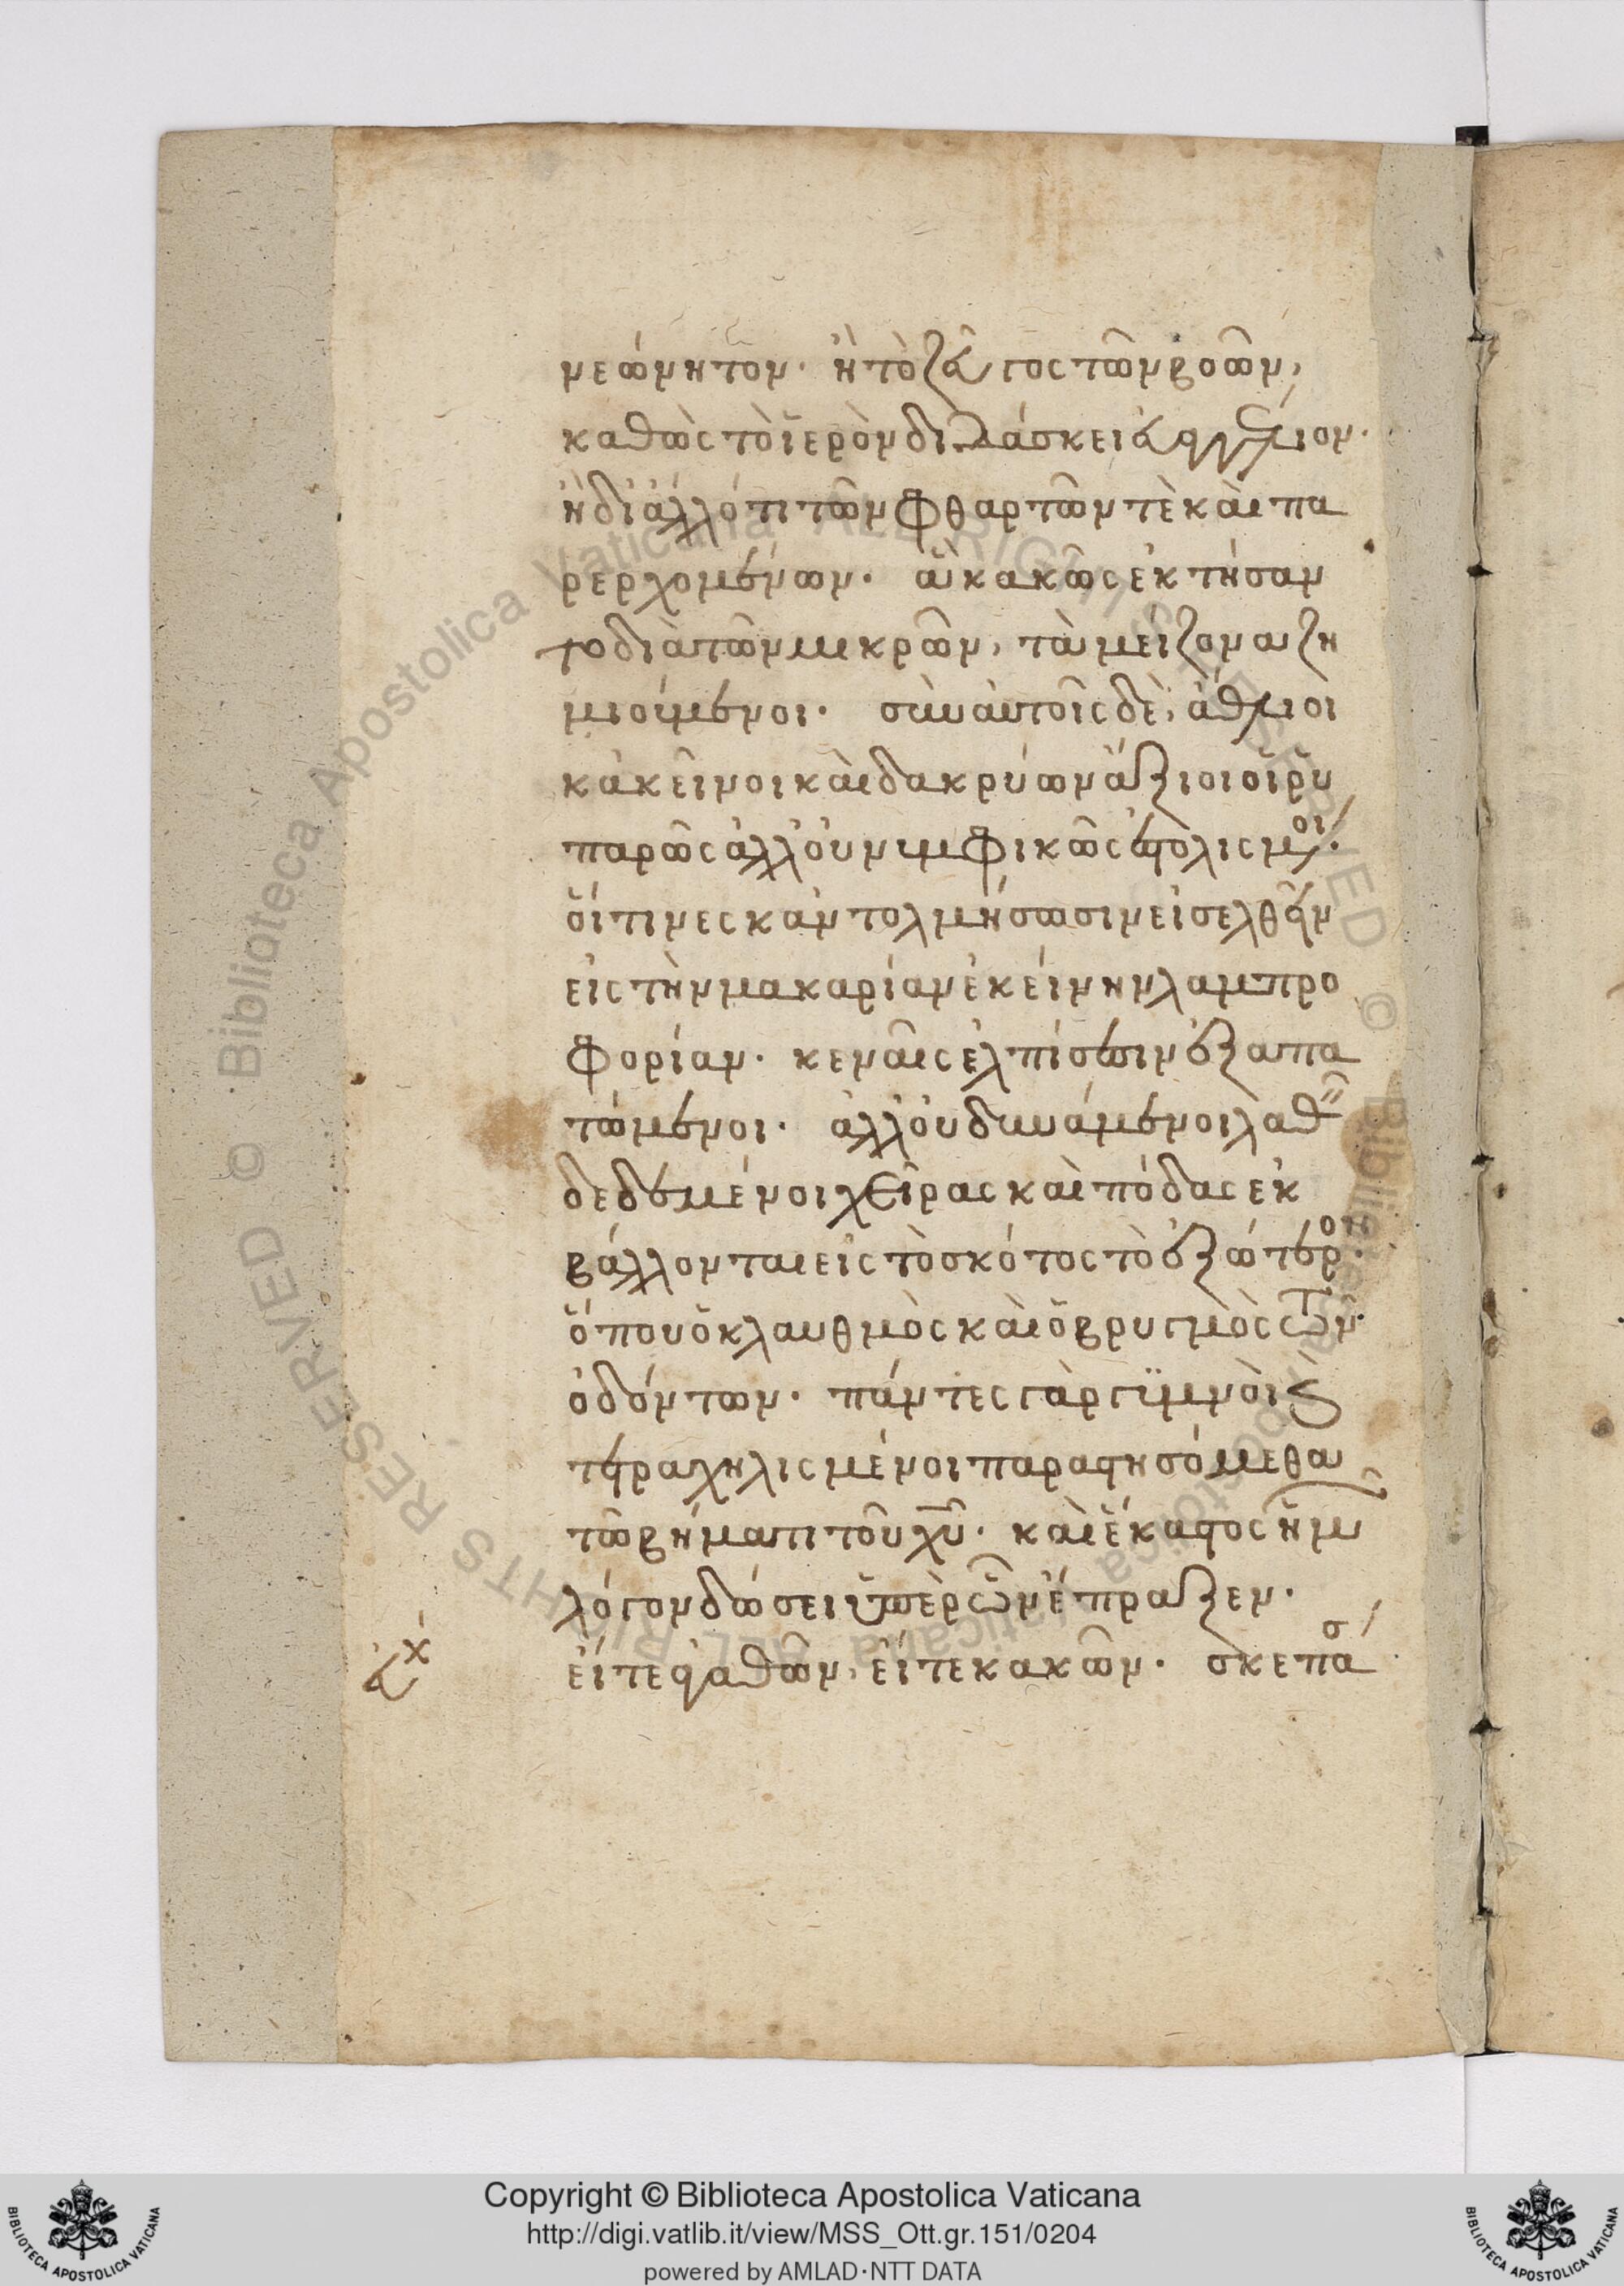 νεώνητον. ἢ τὸ ζεῦγος τῶν βοῶν,
καθὼς τὸ ἱερὸν διδάσκει εὐαγγέλιον.
ἢ δι' ἄλλό τι τῶν φθαρτῶν τὲ καὶ πα
ρερχομένων. ἃ κακῶς ἐκτήσαν
το διὰ τῶν μικρῶν, τὰ μείζονα ζη
μιούμενοι. σὺν αὐτοῖς δὲ, ἄθλιοι
κἀκεῖνοι καὶ δακρύων ἄξιοι οἱ ῥυ
παρῶς ἀλλ' οὐ νυμφικῶς ἐστολισμένοι.
οἵτινες κἂν τολμήσωσιν εἰσελθεῖν
εἰς τὴν μακαρίαν ἐκείνην λαμπρο
φορίαν. κεναῖς ἐλπίσεσιν ἐξαπα
τώμενοι. ἀλλ' οὐ δυνάμενοι λαθεῖν
δεδεμένοι χεῖρας καὶ πόδας ἐκ
βάλλονται εἰς τὸ σκότος τὸ ἐξώτερον.
ὅπου ὁ κλαυθμὸς καὶ ὁ βρυγμὸς τῶν
ὀδόντων. πάντες γὰρ γυμνοὶ καὶ
τετραχηλισμένοι παραστησόμεθα
τῶ βήματι τοῦ χυ. καὶ ἕκαστος ἡμῶν
λόγον δώσει ὑπὲρ ὧν ἔπραξεν.
εἴτε ἀγαθῶν, εἴτε κακῶν. σκεπασ